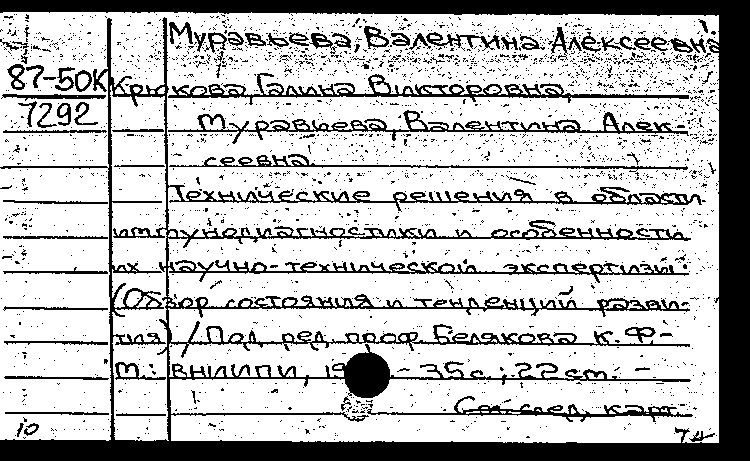 1.
Муравьева, Валентина Алексеевна
87-50К Крюкова, Галина Викторовна,
7292 Муравьева, Валентина Алек-
сеевна.
Технические решения в области
иммунодиагностики и особенности
их научно-технической экспертизы:
(Обзор состояния и тенденций разви-
тия) / Под ред. проф. Белякова К. Ф. -
М.: ВНИИПИ, 19 - 35 с.; 22 см. -
См. след. карт.
10